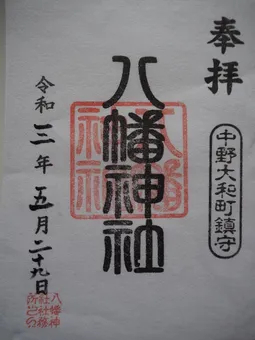 奉拝
中野大和町鎮守
八幡神社
八幡神社
令和三年五月二十九日
八幡神
社社務
所之印